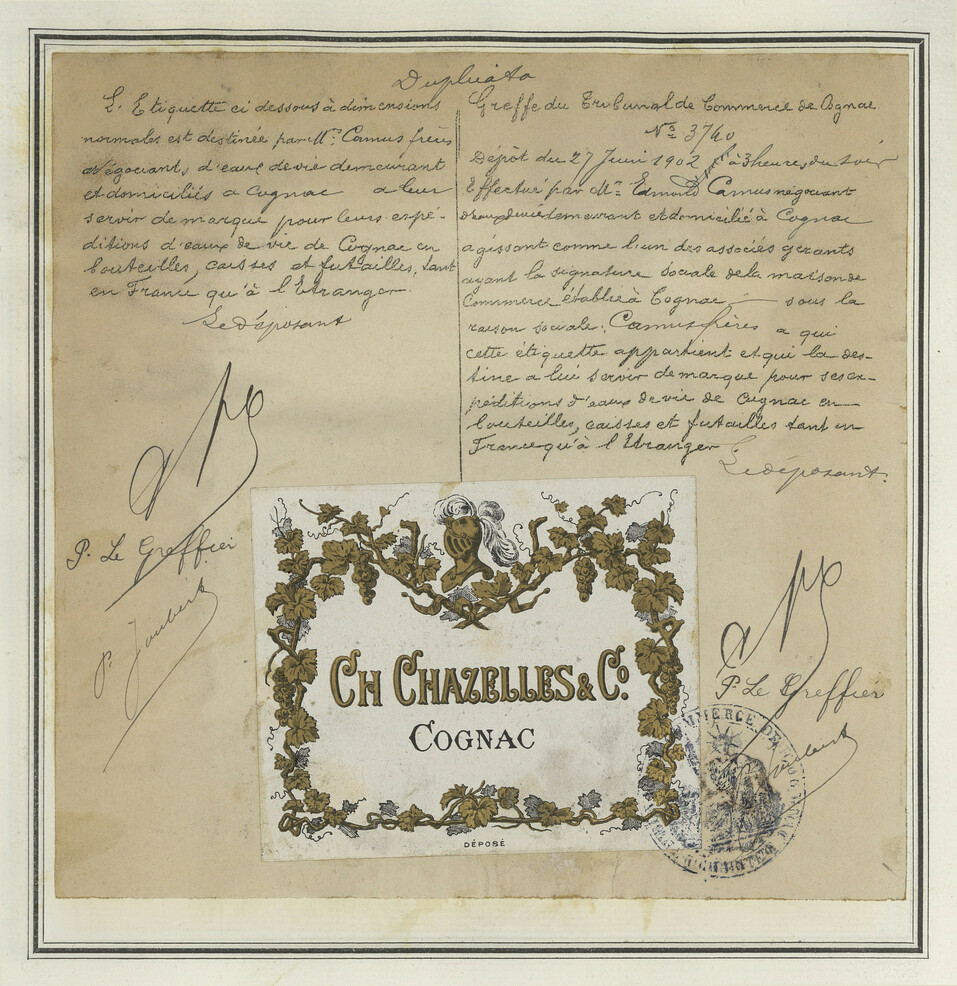 Duplicata
L'Etiquette ci dessous à dimensions
normales est destinée par Mrs Camus frères
négociants, d'eaux de vie demeurant
et domiciliés a Cognac a leur
servir de marque pour leurs expé-
ditions d'eaux de vie de Cognac en
bouteilles, caisses et futailles, tant
en France qu'à l'Etranger.
Le déposant
P. Le Greffier
P. Joubert
Greffe du Tribunal de Commerce de Cognac
No 3740
Dépôt du 27 Juin 1902 à 3 heures du soir
Effectué par Mr Edmond Camus négociant
d'eaux de vie demeurant et domicilié à Cognac
agissant comme l'un des associés gerants
ayant la signature sociale de la maison de
Commerce établie à Cognac sous la
raison sociale: Camus frères a qui
cette étiquette appartient et qui la des-
tine a lui servir de marque pour ses ex-
péditions d'eaux de vie de Cognac en
bouteilles, caisses et futailles tant en
France qu'à l'Etranger
Le déposant.
CH CHAZELLES & Co.
COGNAC
DÉPOSÉ
P. Le Greffier
Joubert
COMMERCE DE COGNAC